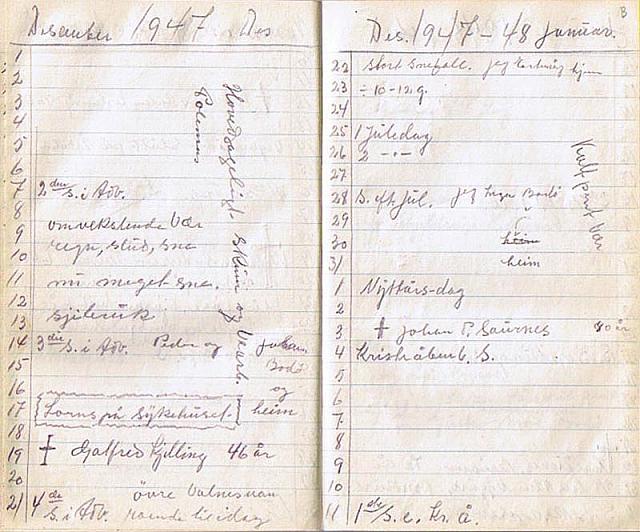 Desember 1947 Des
1
2
3
4
5
6
7 2den S. i Adv.
8
9 omvekslende Vær
10 regn, slud, sne
11 nu meget sne.
12
13
14 3die S. i Adv. Peder og Johan
15 Bodø
16 og
17 på Sykehuset. heim
18
19 † 46 år
20 övre
21 4de S. i Adv. til idag
Hovedsageligt Skin og
Des. 1947 - 48 Januar.
22 Stort Snefall. jeg
23 ÷ 10-12 g.
24
25 1 Juledag
26 2 - " -
27
28 S. eft. Jul. jeg Inga Bodø
29
30 heim
31 heim
1 Nyttårs-dag
2
3 † Johan P. 80 år
4 Kristi åbenb. S.
5
6
7
8
9
10
11 1ste S. e. Kr. å.
Kalt Vær